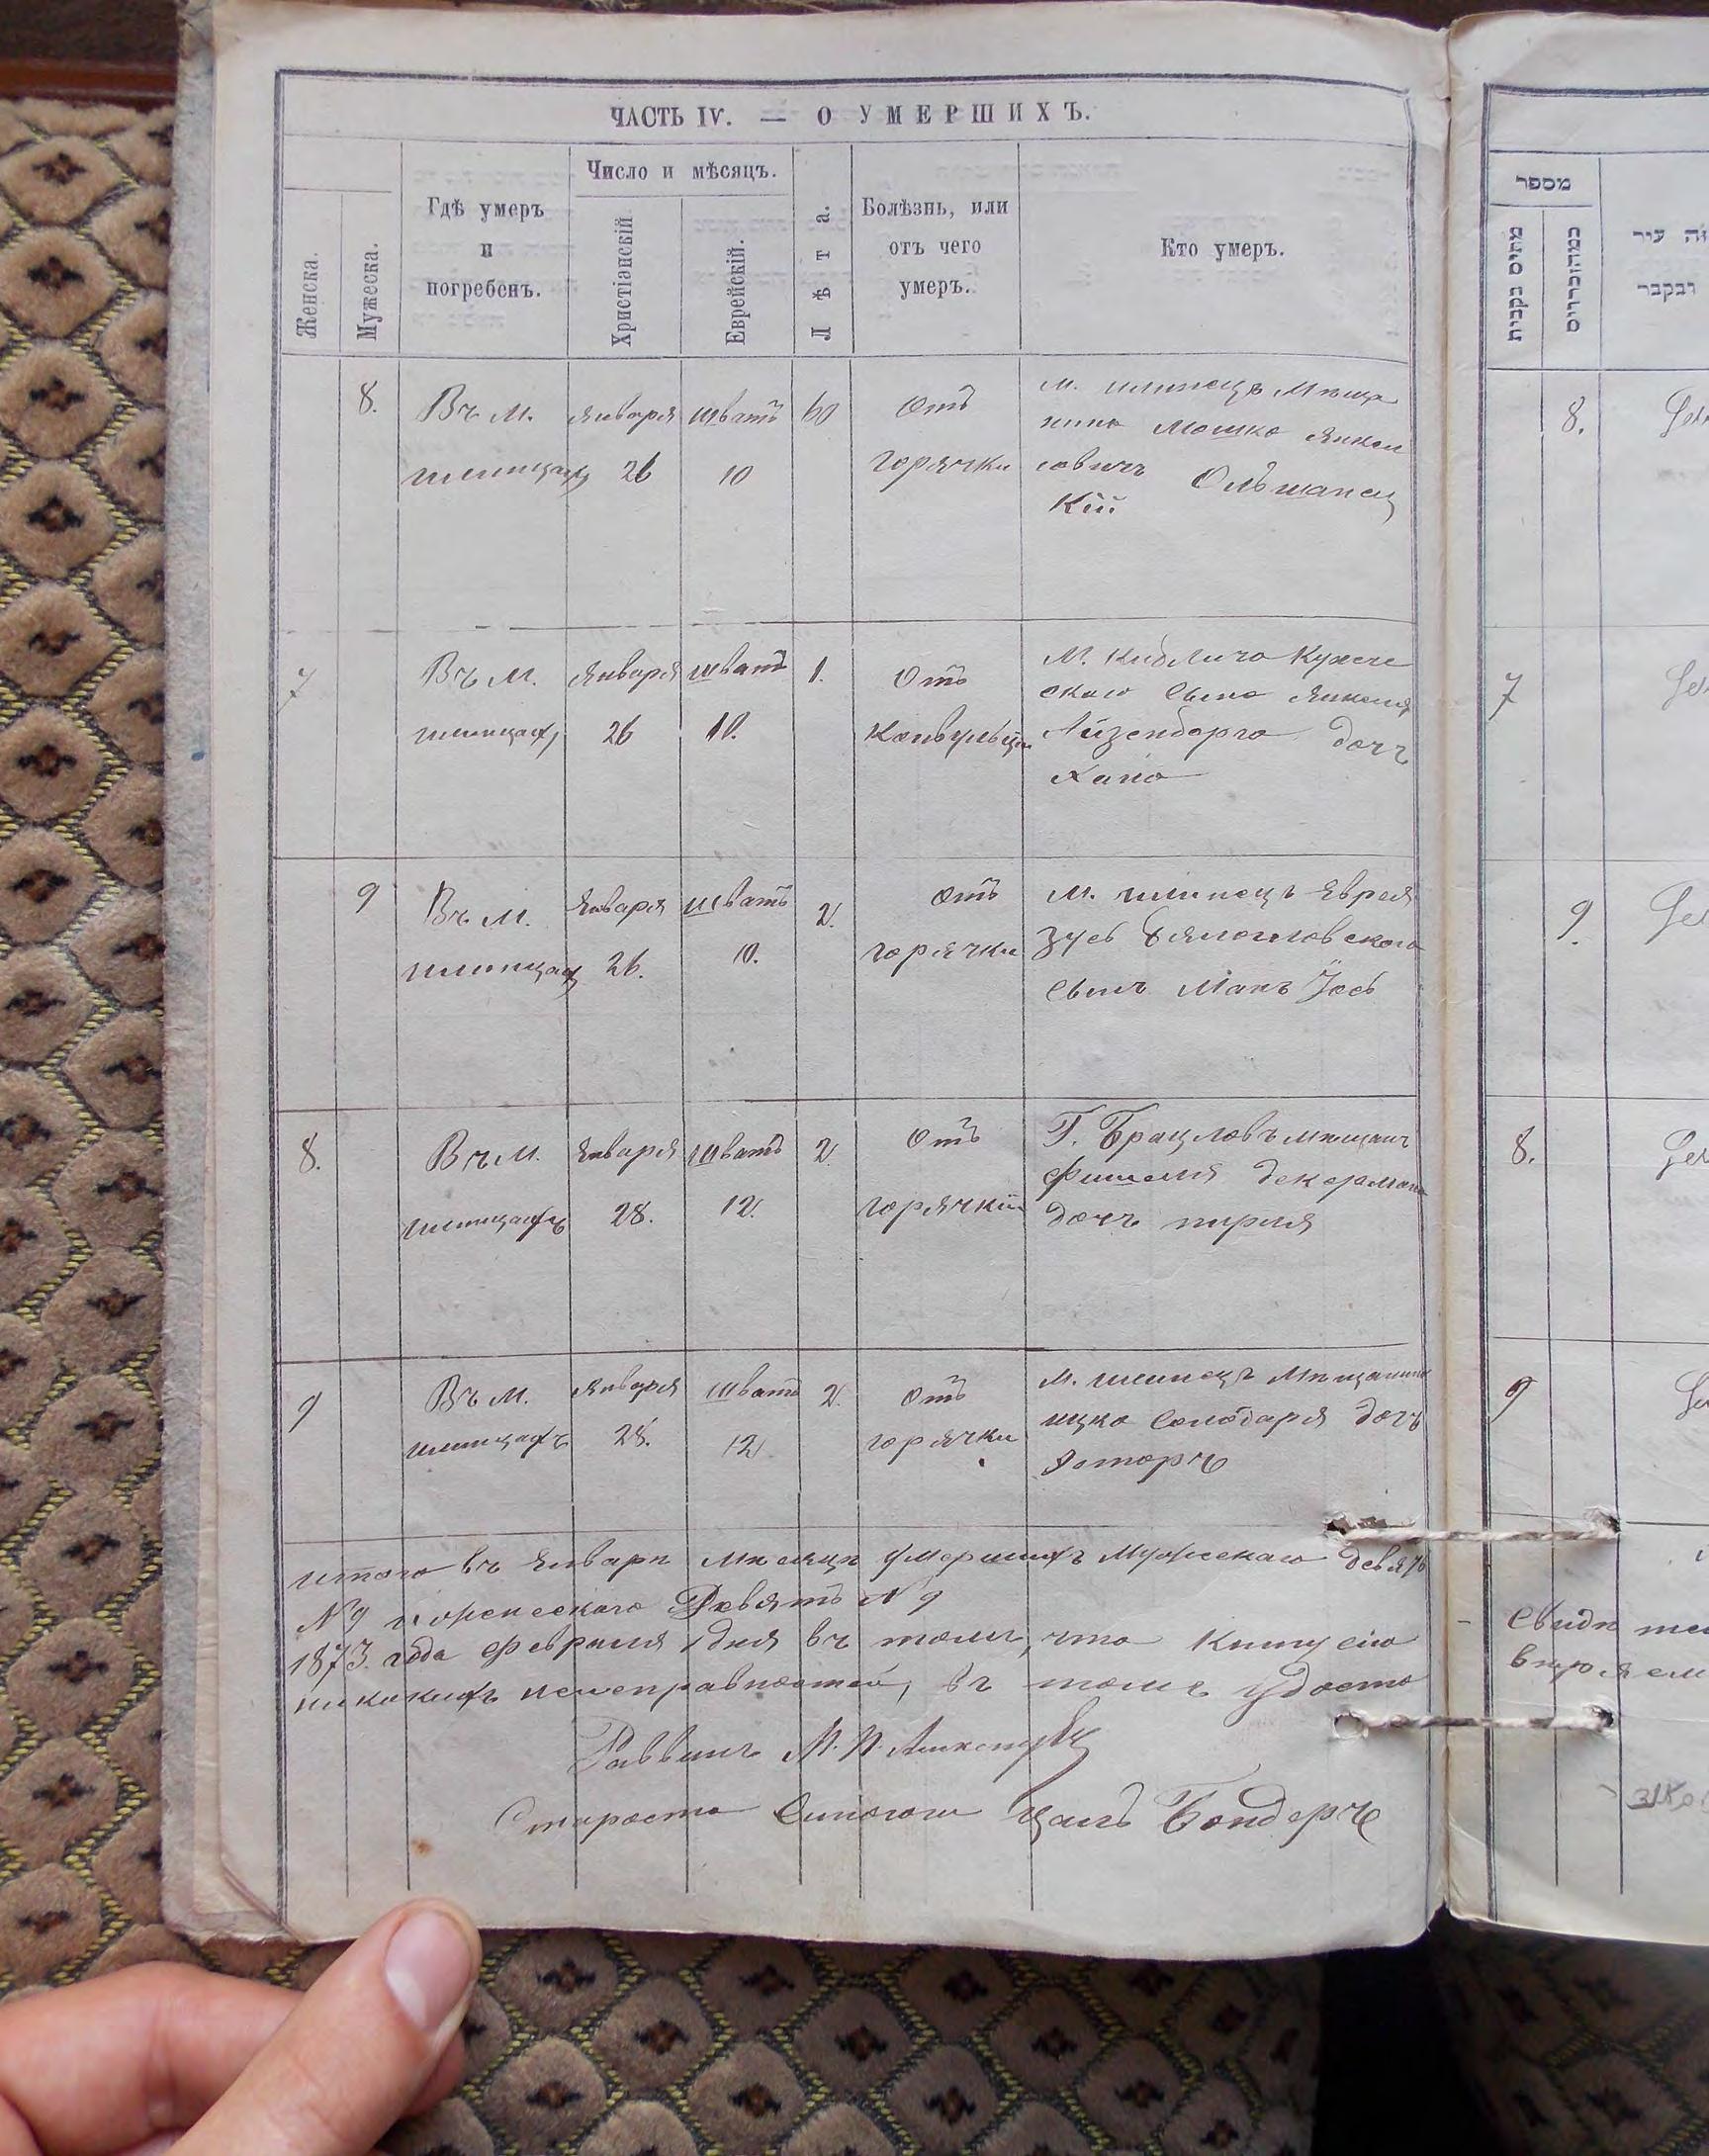 ЧАСТЬ IV. — О УМЕРШИХЪ.
Женска.
Мужеска.
Гдѣ умеръ
и
погребенъ.
Число и мѣсяцъ.
Христіанскій
Еврейскій.
Лѣта.
Болѣзнь, или
отъ чего
умеръ.
Кто умеръ.
8.
Въ М.
шпицах
Января
26
Шватъ
10
60
Отъ
горячки
М. шпинецъ Мѣща
нинъ Мошко Янкел
Ольшанец
Кій.
7
Въ М.
шпицах
Января
26
Шватъ
10.
1.
Отъ
Конвульціи
М. Кублича Купече
скаго Сына Янкеля
Айзенберга дочъ
Хана
9
Въ М.
шпицах
Января
26.
Шватъ
10.
2.
Отъ
горячки
М. шпинецъ Еврея
Сынъ
8.
Въ М.
шпицахъ
Января
28.
Шватъ
12.
2.
Отъ
горячкіи
Г. Брацловъ мѣщан
Фишеля
дочъ пирля
9
Въ М.
шпицахъ
Января
28.
Шватъ
12.
2.
Отъ
горячки
М. шпинецъ Мѣщанин
ицка Солодаря дочъ
Эстеръ
итого въ Январѣ мѣсяцѣ умершихъ Мужескаго девять
№ 9 и женескаго Девять № 9
1873. года Февраля 1 дня въ томъ, что Книгу сію
никакихъ неисправностей, въ томъ удосто
Раввинъ М.
Староста Синагоги Бондеръ
מספר
מתים נקבות
כמהזכרים
זה עיר
ובקבר
8.
7
9.
8.
9
Свидѣ
вѣряем